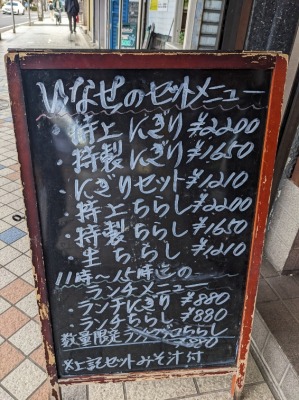 いなせのセットメニュー
・特上にぎり¥2200
・特製にぎり¥1650
・にぎりセット¥1210
・特上ちらし¥2200
・特製ちらし¥1650
・生ちらし¥1210
11時〜15時迄の
ランチメニュー
・ランチにぎり¥880
・ランチちらし¥880
数量限定ランチ ちらし
¥880
※上記セットみそ汁付